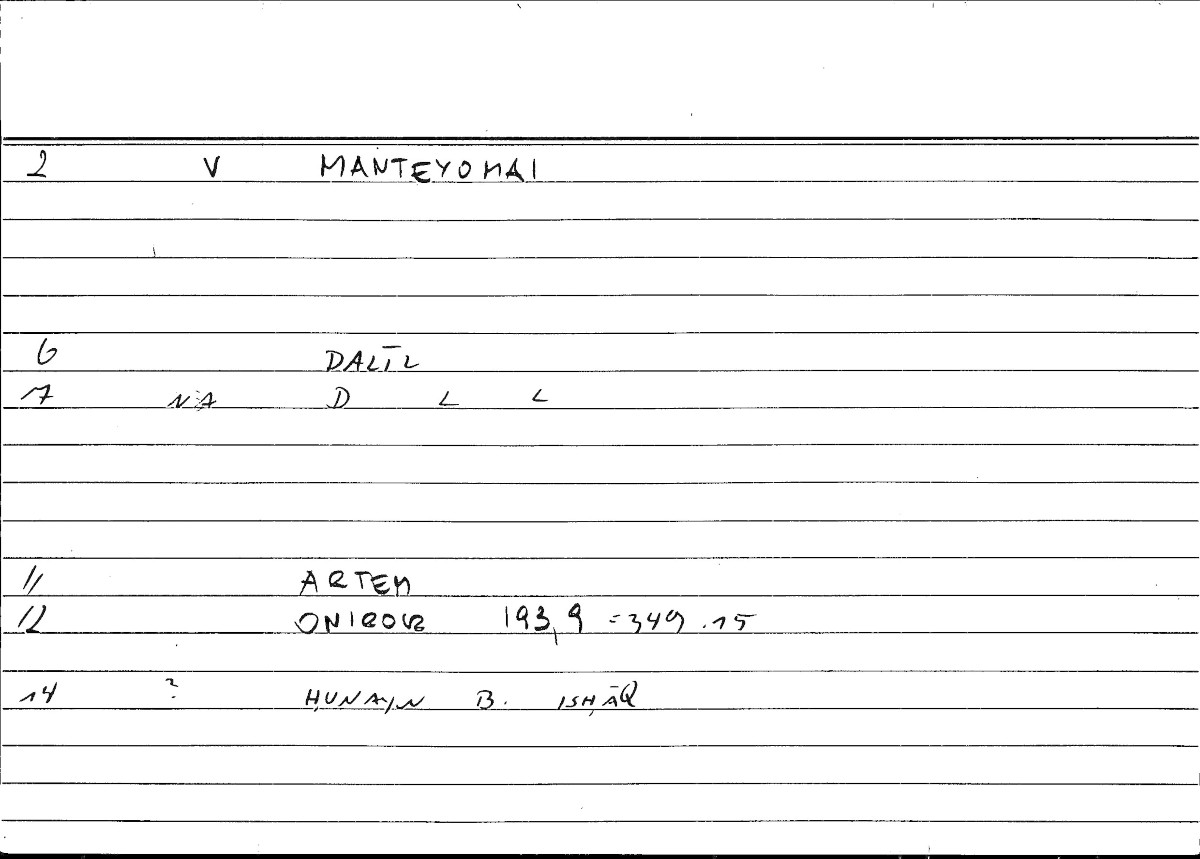 2 V MANTEYOMAI
6 DALĪL
17 NA D L L
11 ARTEM
12 ONIROCR 193,9 =349.15
14 ? ḤUNAYN B. ISḤĀQ